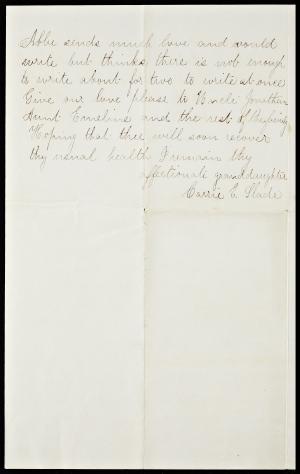 Abbe sends much love and would
write but thinks there is not enough
to write about for two to write at once
Give our love please to Uncle Jonathan
Aunt Emeline and the rest of the family
Hoping that thee will soon recover
thy usual health I remain thy
affectionate granddaughter
Carrie E. Slade